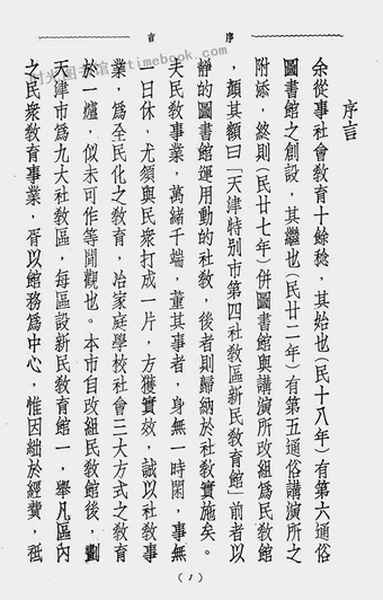 序言
時光圖書館 · timebook.com
序言
余從事社會教育十餘稔，其始也（民十八年）有第六通俗
圖書館之創設，其繼也（民廿二年）有第五通俗講演所之
附添，終則（民廿七年）併圖書館與講演所改組爲民教館
，顏其額曰「天津特別市第四社教區新民教育館」前者以
靜的圖書館運用動的社教，後者則歸納於社教實施矣。
夫民教事業，萬緒千端，董其事者，身無一時閑，事無
一日休，尤須與民衆打成一片，方獲實效，誠以社教事
業，爲全民化之教育，冶家庭學校社會三大方式之教育
於一爐，似未可作等閒觀也。本市自改組民教館後，劃
天津市爲九大社教區，每區設新民教育館一，舉凡區內
之民衆教育事業，胥以館務爲中心，惟因絀於經費，祗
（1）